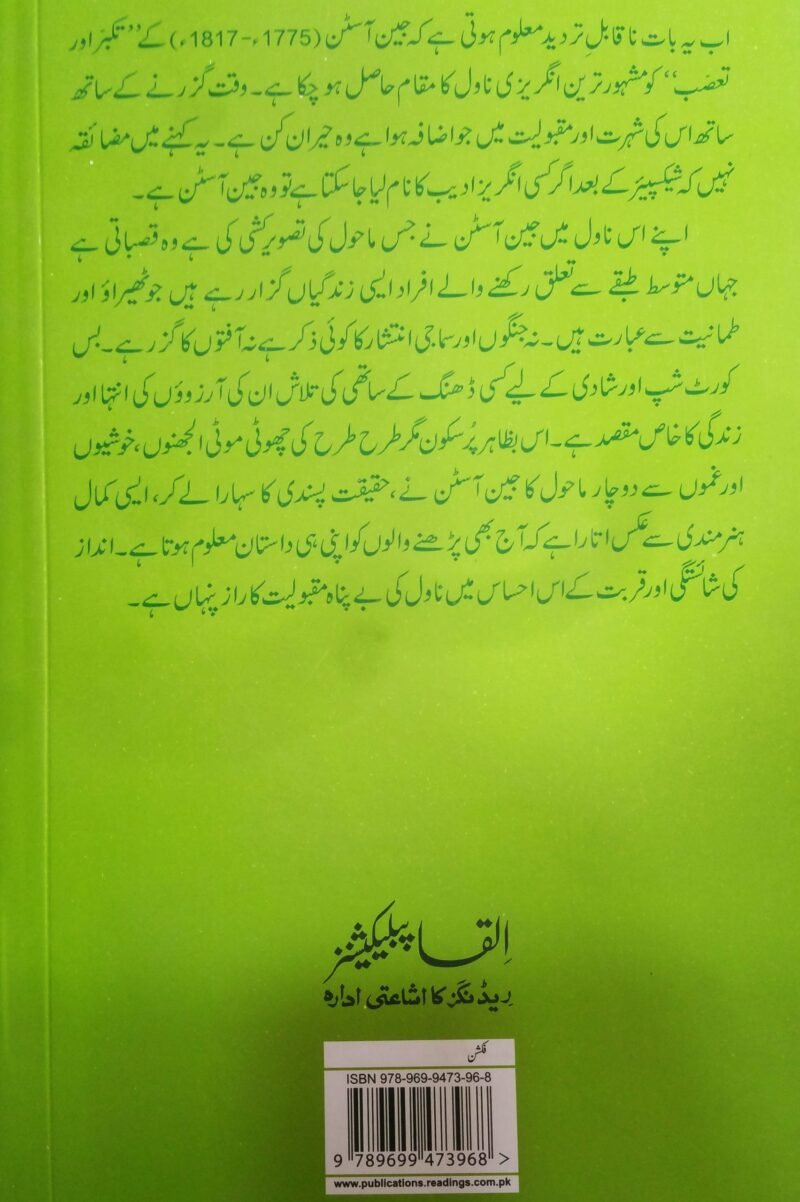 اب یہ بات ناقابلِ تردید معلوم ہوتی ہے کہ جین آسٹن (1775ء-1817ء) کے ’’تکبّر اور
تعصّب‘‘ کو مشہور ترین انگریزی ناول کا مقام حاصل ہو چکا ہے۔ وقت گزرنے کے ساتھ
ساتھ اس کی شہرت اور مقبولیت میں جو اضافہ ہوا ہے وہ حیران کن ہے۔ یہ کہنے میں مضائقہ
نہیں کہ شیکسپیئر کے بعد اگر کسی انگریز ادیب کا نام لیا جا سکتا ہے تو وہ جین آسٹن ہے۔
اپنے اس ناول میں جین آسٹن نے جس ماحول کی تصویر کشی کی ہے وہ قصباتی ہے
جہاں متوسط طبقے سے تعلق رکھنے والے افراد ایسی زندگیاں گزار رہے ہیں جو ٹھیراؤ اور
طمانیت سے عبارت ہیں۔ نہ جنگوں اور سماجی انتشار کا کوئی ذکر ہے نہ آفتوں کا گزر ہے۔ بس
کورٹ شپ اور شادی کے لیے کسی ڈھنگ کے ساتھی کی تلاش ان کی آرزوؤں کی انتہا اور
زندگی کا خاص مقصد ہے۔ اس بظاہر پُرسکون مگر طرح طرح کی چھوٹی موٹی الجھنوں، خوشیوں
اور غموں سے دوچار ماحول کا جین آسٹن نے، حقیقت پسندی کا سہارا لے کر، ایسی کمال
ہنرمندی سے عکس اتارا ہے کہ آج بھی پڑھنے والوں کو اپنی ہی داستان معلوم ہوتا ہے۔ انداز
کی شائستگی اور قربت کے اس احساس میں ناول کی بے پناہ مقبولیت کا راز پنہاں ہے۔
اِلقا پبلیکیشنز
ریڈنگز کا اشاعتی ادارہ
فکشن
ISBN 978-969-9473-96-8
9 789699 473968 >
www.publications.readings.com.pk